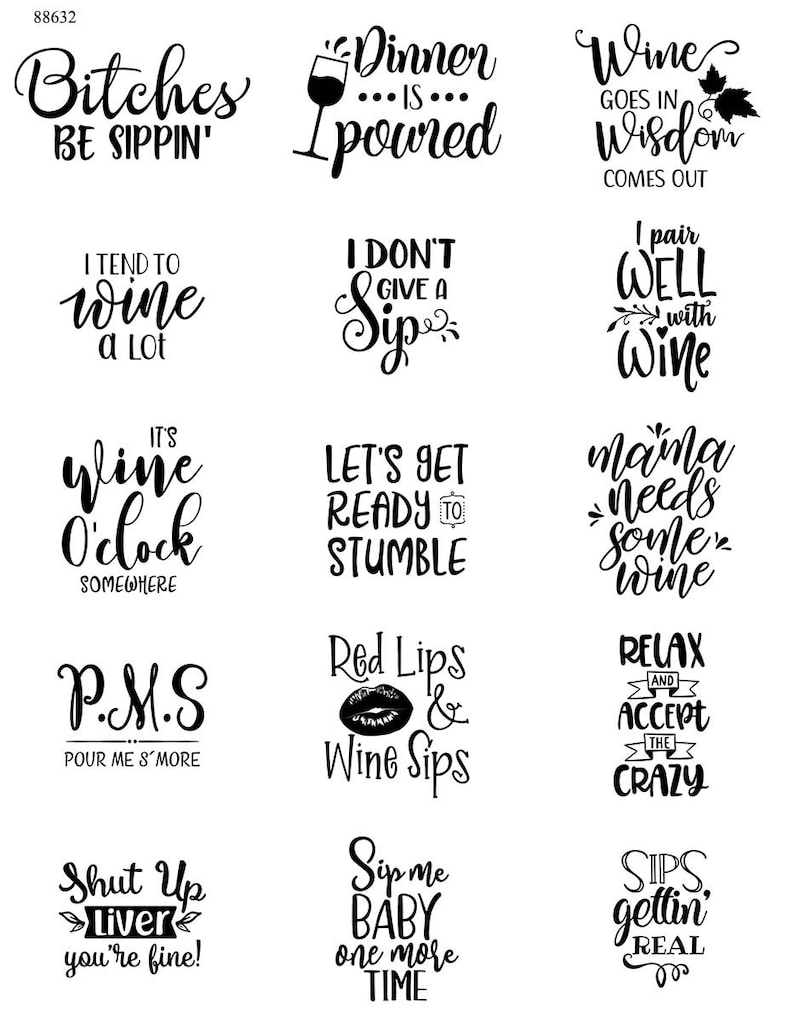 88632
Bitches
BE SIPPIN'
Dinner
IS
poured
Wine
GOES IN
Wisdom
COMES OUT
I TEND TO
wine
a LOt
I DON'T
GIVE A
Sip
I pair
WELL
with
WiNe
IT'S
wine
O'clock
SOMEWHERE
LET'S GET
READY TO
STUMBLE
mama
needs
some
wine
P.M.S
POUR ME S'MORE
Red Lips
&
Wine Sips
RELAX
AND
ACCEPT
THE
CRAZY
Shut Up
LiVER
you're fine!
Sip me
BABY
one more
TIME
SIPS
gettin'
REAL